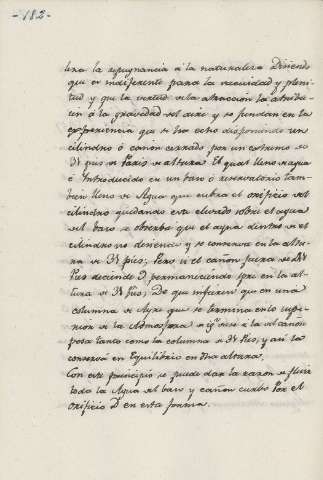 -182-
tura la repugnancia á la naturaleza Diciendo
que es indiferente para la vacuidad y pleni-
tud y que la virtud de la atraccion la atribu-
ien á la gravedad del aire y se fundan en la
experiencia que se ha echo disponiendo un
cilindro ó cañon cerrado por un extremo de
34 pies de Paris de altura El qual lleno de agua
é Introducido en un baso ó reservatorio tam-
bien lleno de Agua que cubra el orificio del
cilindro quedando este elevado sobre el agua
del baso se observa que el agua dentro de el
cilindro no desciende y se conserva en la altu-
ra de 34 pies; Pero si el cañon fuera de
Pies deciende D. permaneciendo spre en la al-
tura de 34 pies; De que infieren que en una
columna de Ayre que se termina en lo supe-
rior de la Atmosfera
pesa tanto como la columna de 34 Pies, y asi la
conserva en Equilibrio en dha altura.
Con este principio se puede dar la razon de fluir
toda la Agua del baso y cañon curbo Por el
orificio D en esta forma.